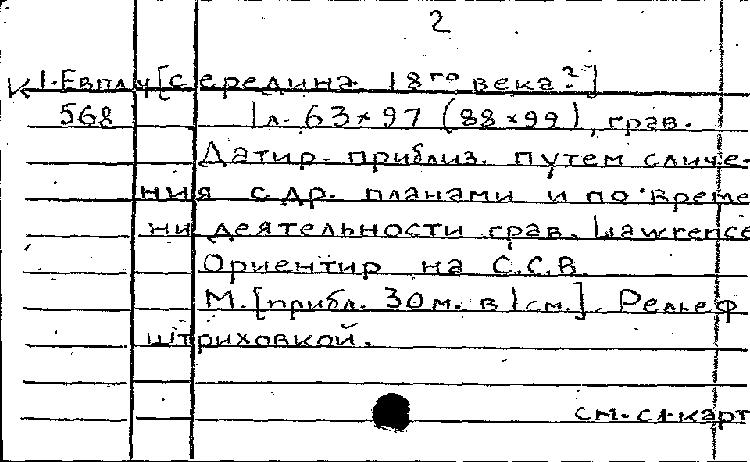 2
К 1-Евпл/4 [середина 18го века?]
568 1 л. 63×97 (88×99), грав.
Датир. приблиз. путем сличе-
ния с др. планами и по време-
ни деятельности грав. Lawrence
Ориентир на С.С.В.
М. [прибл. 30 м. в 1 см.]. Рельеф
штриховкой.
см. сл. карт